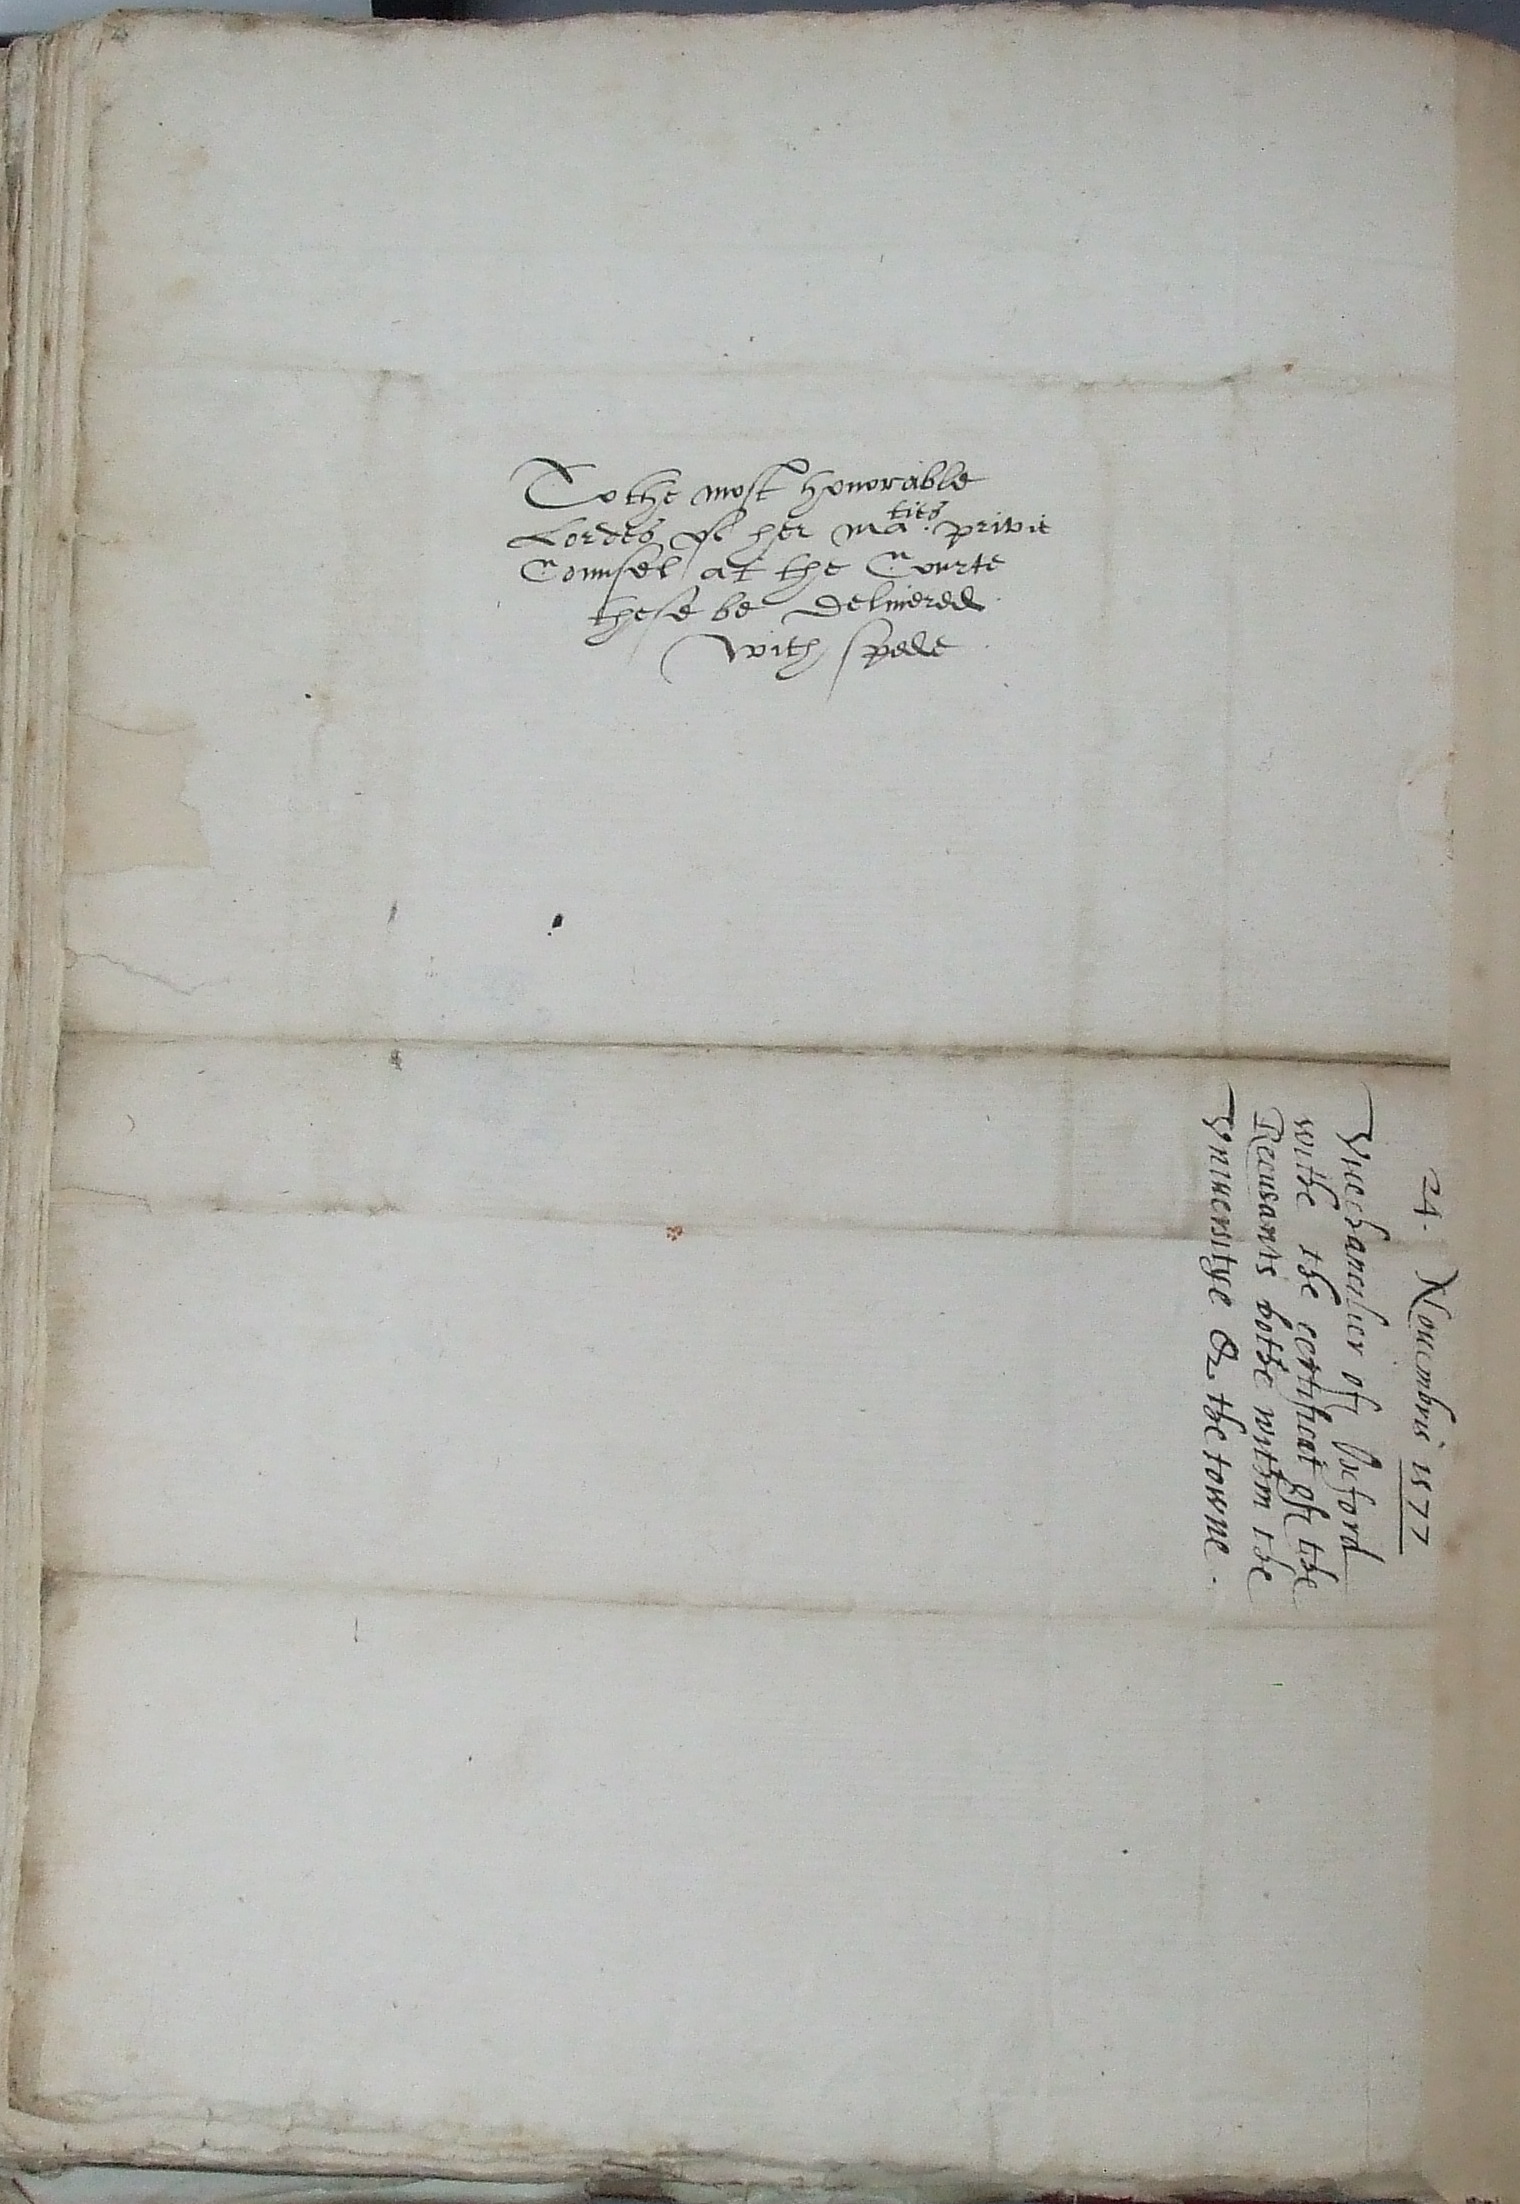 To the most honorable
Lordes of her ma.ties privie
Counsel at the Courte
these be deliuered
with spede
24. Nouembris 1577
Vicechanceler of Oxford
withe the certificat of the
Recusants bothe within the
Vniuersitye & the towne.